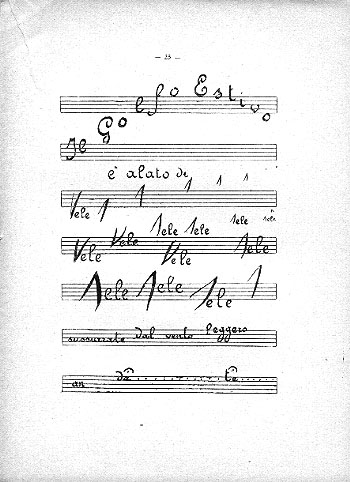 — 23 —
Il Golfo Estivo
è alato di
Vele 1 1 1 1 1 1ele
Vele Vele 1ele 1ele Vele 1ele 1ele
1ele 1ele 1ele 1
sussurrate dal vento leggero
an dã............tẽ........